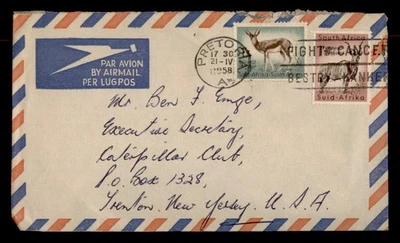 PAR AVION
BY AIRMAIL
PER LUGPOS
PRETORIA
17 30
21-IV
1958
FIGHT CANCER
BESTRY KANKER
South Africa
Suid-Afrika
Mr. Ben F.
Executive Secretary,
Caterpillar Club,
P.O. Box 1328,
Trenton. New Jersey. U.S.A.